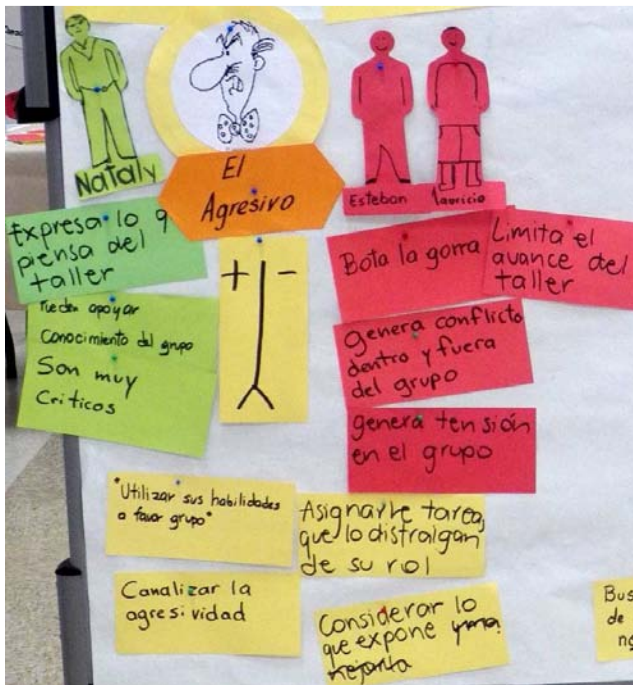 Nataly
El
Agresivo
Esteban
Mauricio
Expresa lo q
piensa del
taller
Pueden apoyar
Conocimiento del grupo
Son muy
Criticos
+ -
Bota la gorra
Limita el
avance del
taller
genera conflicto
dentro y fuera
del grupo
genera tensión
en el grupo
"Utilizar sus habilidades
a favor grupo"
Asignarle tarea,
que lo distraigan
de su rol
Canalizar la
agresividad
Considerar lo
que expone
Bus
de